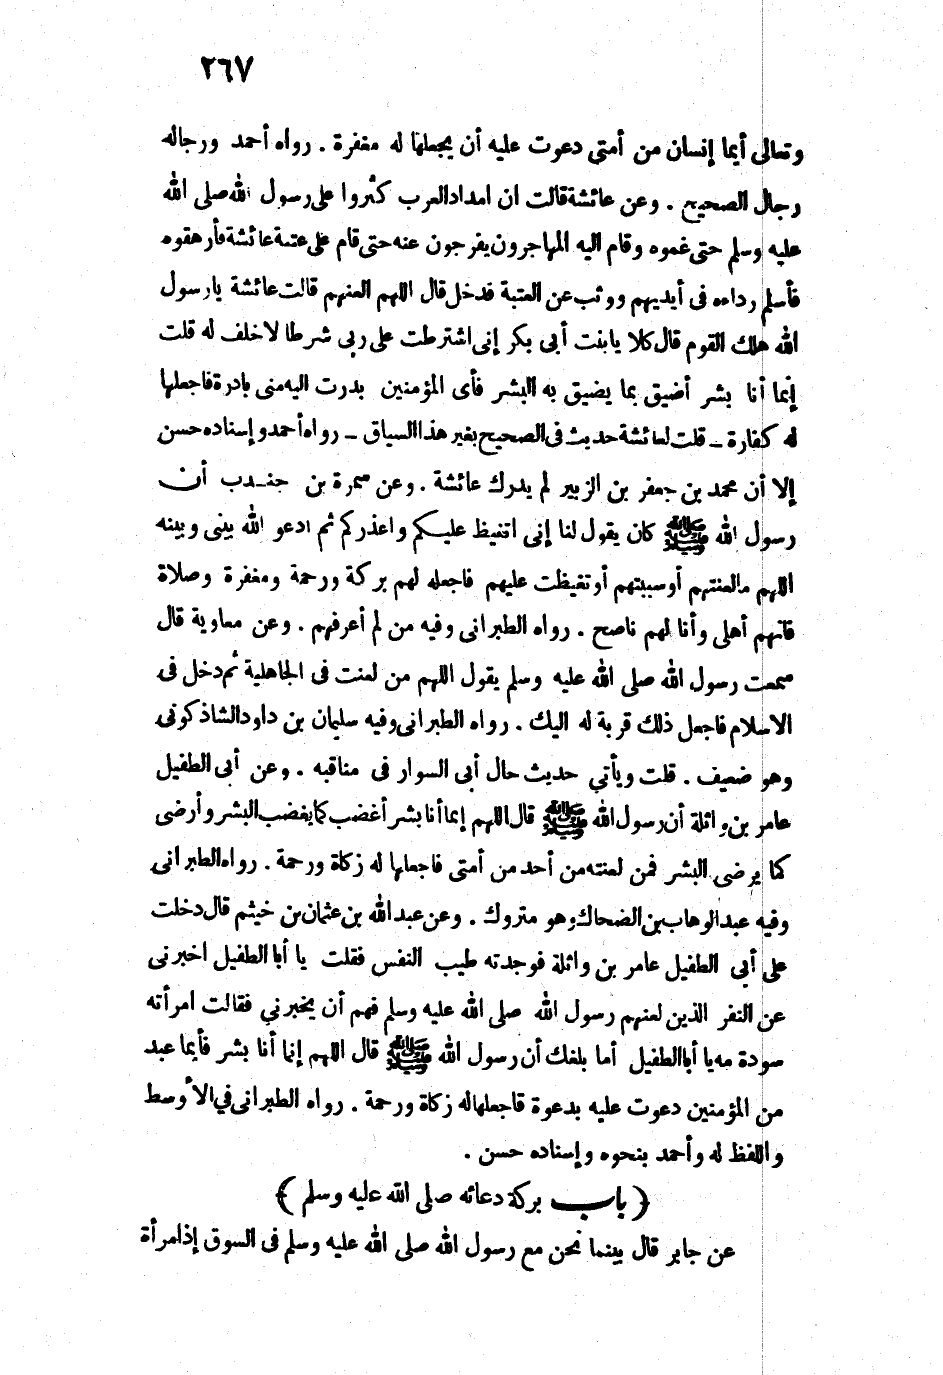 ٢٦٧
وتعالى أيما إنسان من أمتى دعوت عليه أن يجعلها له مغفرة . رواه أحمد ورجاله
رجال الصحيح . وعن عائشة قالت ان امداد العرب كثروا على رسول الله صلى الله
عليه وسلم حتى غموه وقام اليه المهاجرون يفرجون عنه حتى قام على عتبة عائشة فأرهقوه
فأسلم رداءه فى أيديهم ووثب عن العتبة فدخل قال اللهم العنهم قالت عائشة يا رسول
الله هلك القوم قال كلا يا بنت أبى بكر إنى اشترطت على ربى شرطا لا خلف له قلت
إنما أنا بشر أضيق بما يضيق به البشر فأى المؤمنين بدرت اليه منى بادرة فاجعلها
له كفارة ـ قلت لعائشة حديث فى الصحيح بغير هذا السياق ـ رواه أحمد وإسناده حسن
إلا أن محمد بن جعفر بن الزبير لم يدرك عائشة . وعن سمرة بن جنـدب أن
رسول الله ﷺ كان يقول لنا إنى اتغيظ عليـكم واعذركم ثم ادعو الله بينى وبينه
اللهم مالعنتهم أو سببتهم أو تغيظت عليهم فاجعله لهم بركة ورحمة ومغفرة وصلاة
فانهم أهلى وأنا لهم ناصح . رواه الطبرانى وفيه من لم أعرفهم . وعن معاوية قال
سمعت رسول الله صلى الله عليه وسلم يقول اللهم من لعنت فى الجاهلية ثم دخل فى
الاسلام فاجعل ذلك قربة له اليك . رواه الطبرانى وفيه سليمان بن داود الشاذكونى
وهو ضعيف . قلت ويأتي حديث خال أبى السوار فى مناقبه . وعن أبى الطفيل
عامر بن واثلة أن رسول الله ﷺ قال اللهم إنما أنا بشر أغضب كما يغضب البشر وأرضى
كما يرضى البشر فمن لعنته من أحد من أمتى فاجعلها له زكاة ورحمة . رواه الطبرانى
وفيه عبد الوهاب بن الضحاك وهو متروك . وعن عبد الله بن عثمان بن خيثم قال دخلت
على أبى الطفيل عامر بن واثلة فوجدته طيب النفس فقلت يا أبا الطفيل اخبرنى
عن النفر الذين لعنهم رسول الله صلى الله عليه وسلم فهم أن يخبرني فقالت امرأته
سودة مه يا أبا الطفيل أما بلغك أن رسول الله ﷺ قال اللهم إنما أنا بشر فأيما عبد
من المؤمنين دعوت عليه بدعوة فاجعلها له زكاة ورحمة . رواه الطبرانى في الأوسط
واللفظ له وأحمد بنحوه وإسناده حسن .
﴿ باب بركة دعائه صلى الله عليه وسلم ﴾
عن جابر قال بينما نحن مع رسول الله صلى الله عليه وسلم فى السوق إذا مرأة